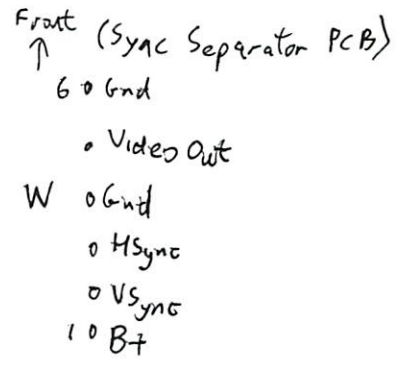 Front (Sync Separator PCB)
↑
6 o Gnd
• Video Out
W o Gnd
o HSync
o VSync
1 o B+